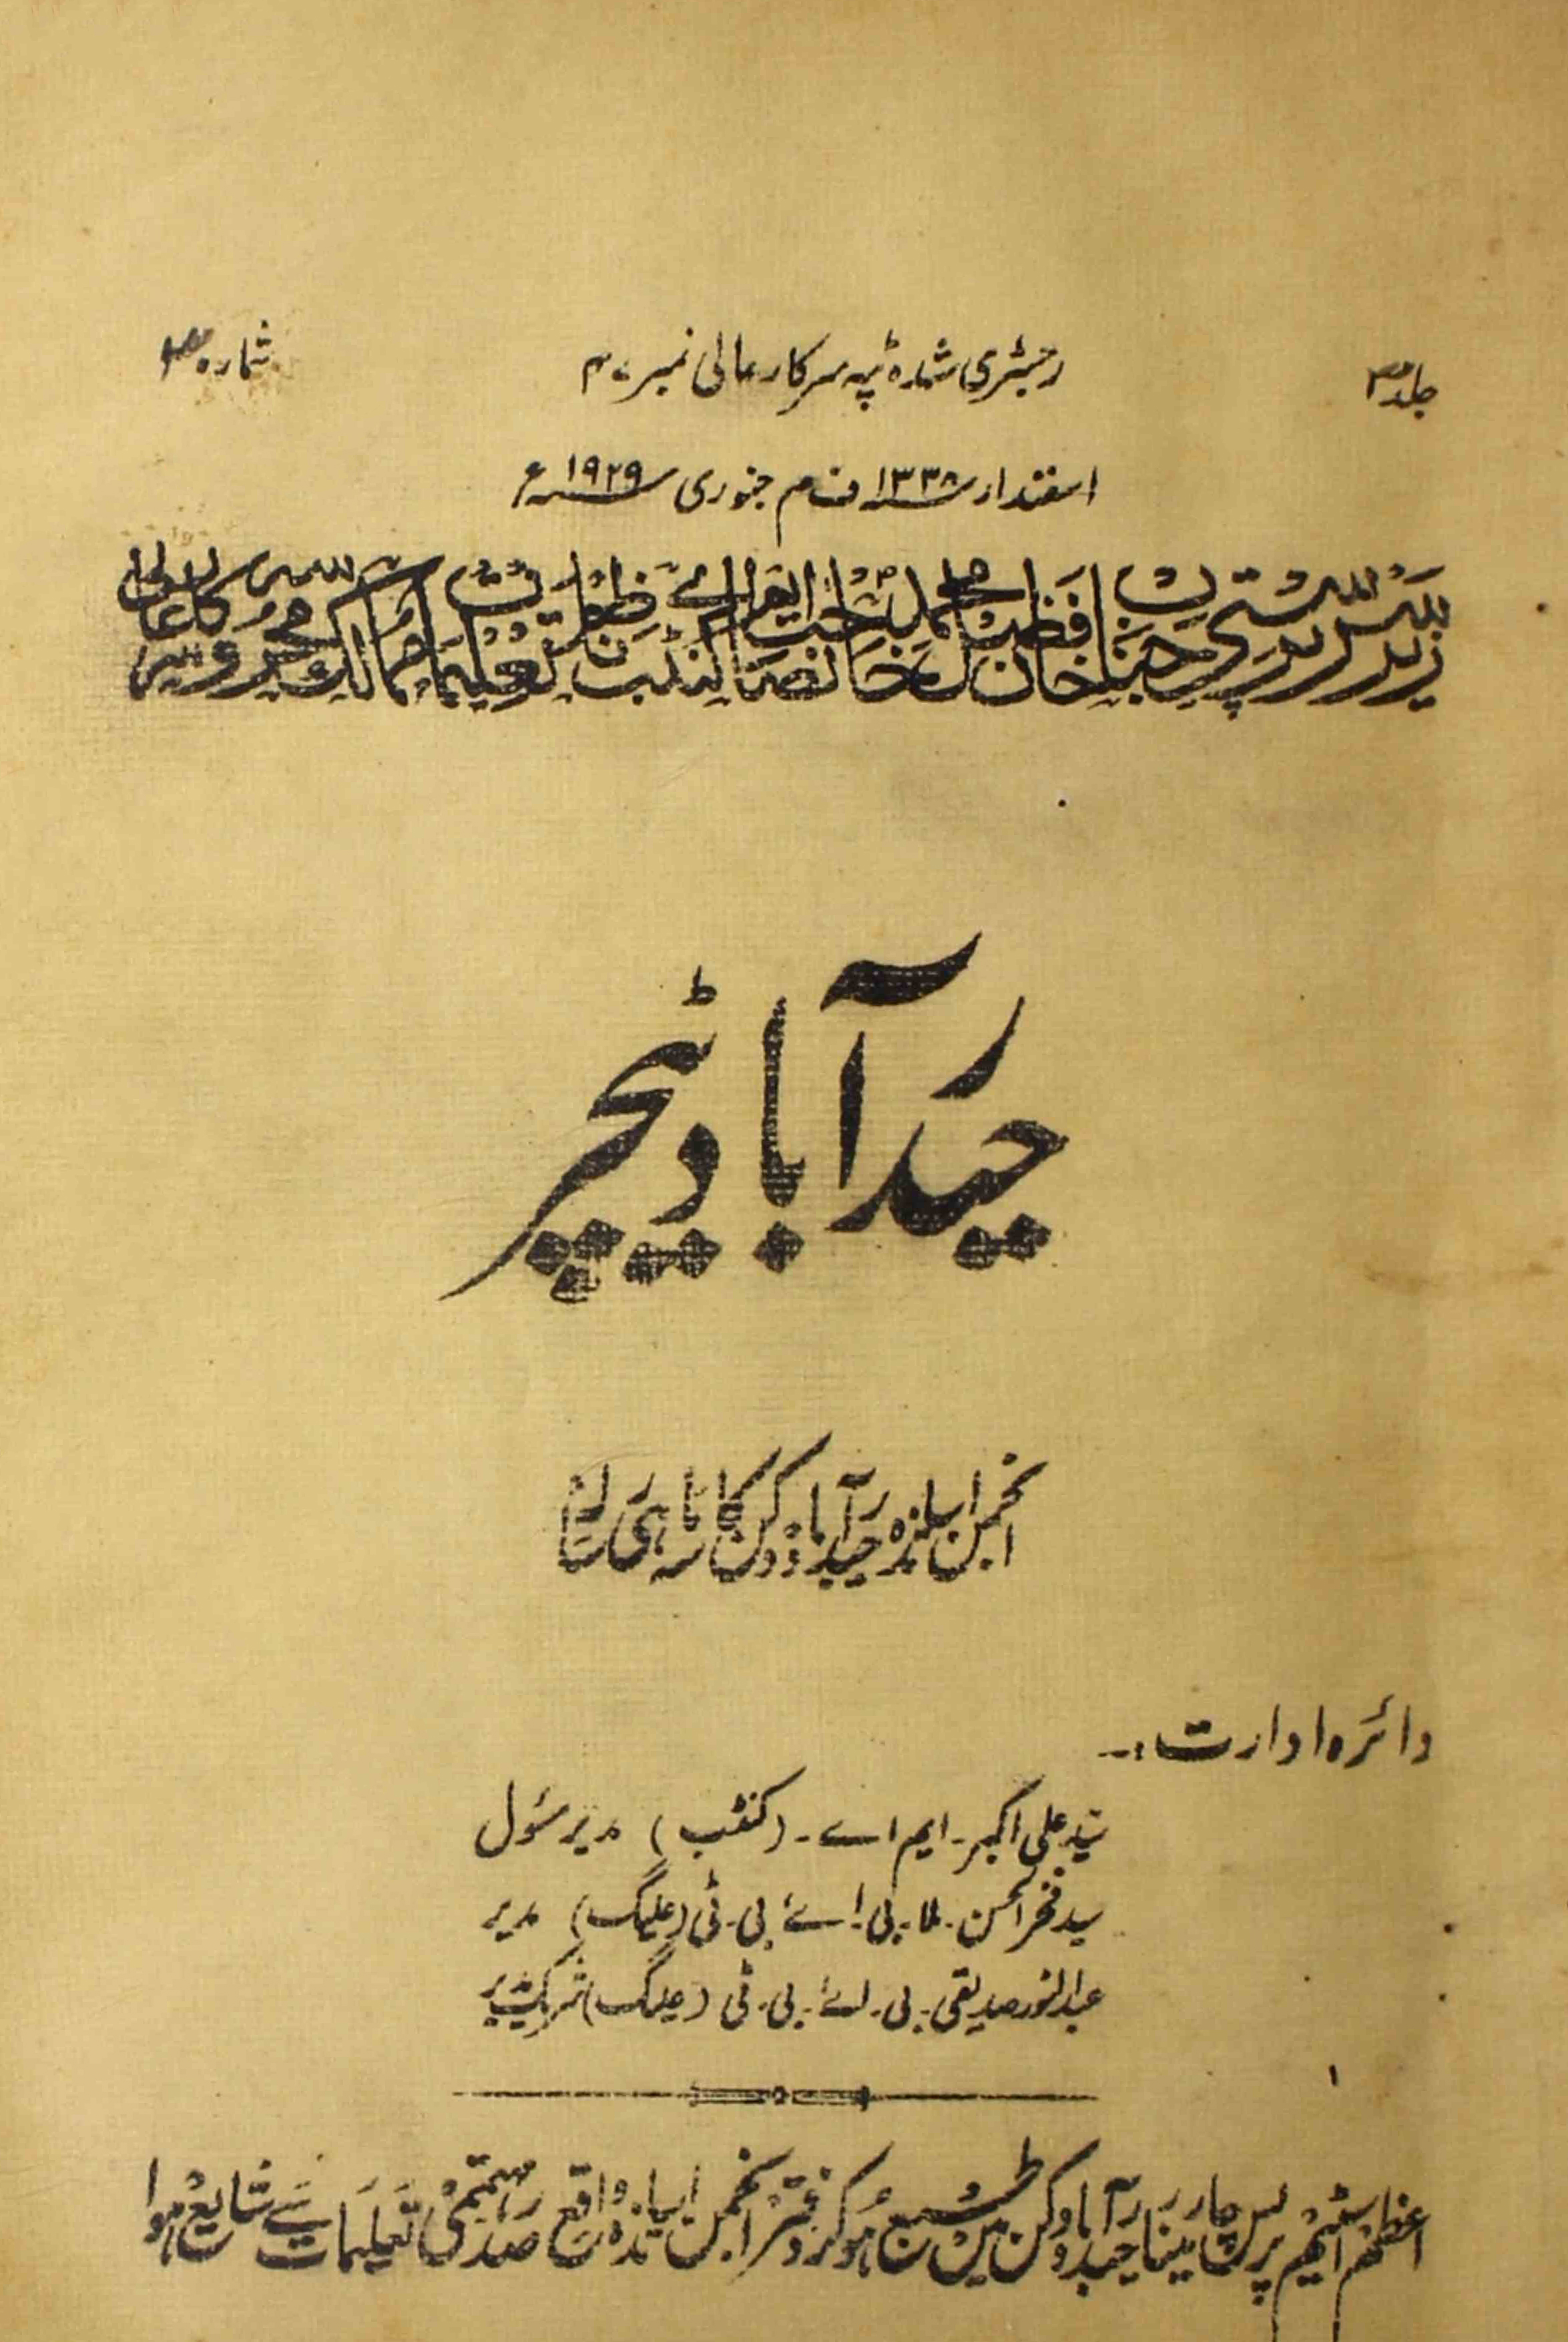 جلد ۳
رجسٹری شدہ ٹپہ سرکار عالی نمبر ۴۰
شمارہ
اسفندار ۱۳۳۸ ف م جنوری ۱۹۲۹ء
زیر سرپرستی جناب خان فضل محمد خان صاحب ایم اے ناظم تعلیمات ممالک محروسہ سرکار عالی
حیدرآباد ٹیچر
انجمن اساتذہ حیدرآباد دکن کا سہ ماہی رسالہ
دائرہ ادارت :۔
سید علی اکبر۔ ایم اے۔ (کنٹب) مدیر مسئول
سید فخر الحسن۔ ملا۔ بی۔ اے، بی۔ ٹی (علیگ) مدیر
عبد النور صدیقی۔ بی۔ اے، بی۔ ٹی (علیگ) شریک مدیر
اعظم اسٹیم پریس چار مینار حیدرآباد دکن میں طبع ہو کر دفتر انجمن اساتذہ واقع صدر مہتممی تعلیمات سے شایع ہوا